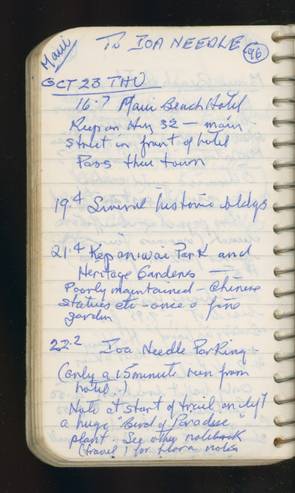 Maui
To IOA NEEDLE
96
OCT 23 THU
16.7 Maui Beach Hotel
Keep on Hwy 32 — main
street in front of hotel
Pass thru town
19.4 Several historic bldgs
21.4 Kepaniwai Park and
Heritage Gardens —
Poorly maintained — Chinese
statues etc - once a fine
garden
22.2 Ioa Needle Parking -
(only a 15 minute run from
hotel.)
Note at start of trail on left
a huge "Bird of Paradise"
plant. See other notebook
(travel) for flora notes